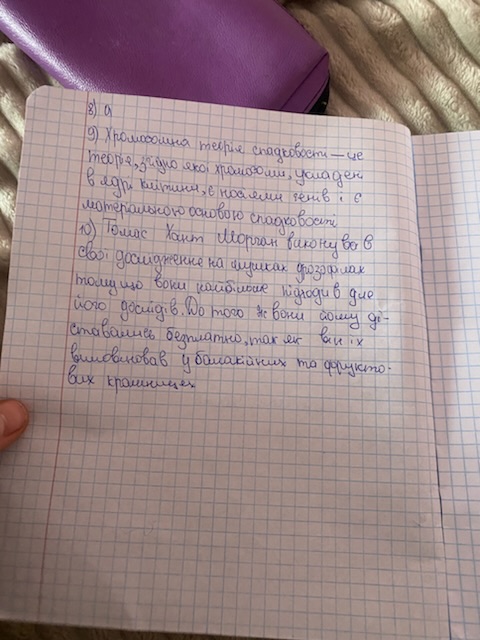 8) а
9) Хромосомна теорія спадковості — це
теорія, згідно якої хромосоми, укладені
в ядрі клітини, є носіями генів і є
матеріальною основою спадковості
10) Томас Хант Морган виконував
свої дослідження на мушках дрозофілах
тому що вони найбільше підходив для
його дослідів. До того ж вони йому ді-
ставались безплатно, так як він їх
виловлював у бакалійних та фрукто-
вих крамницях